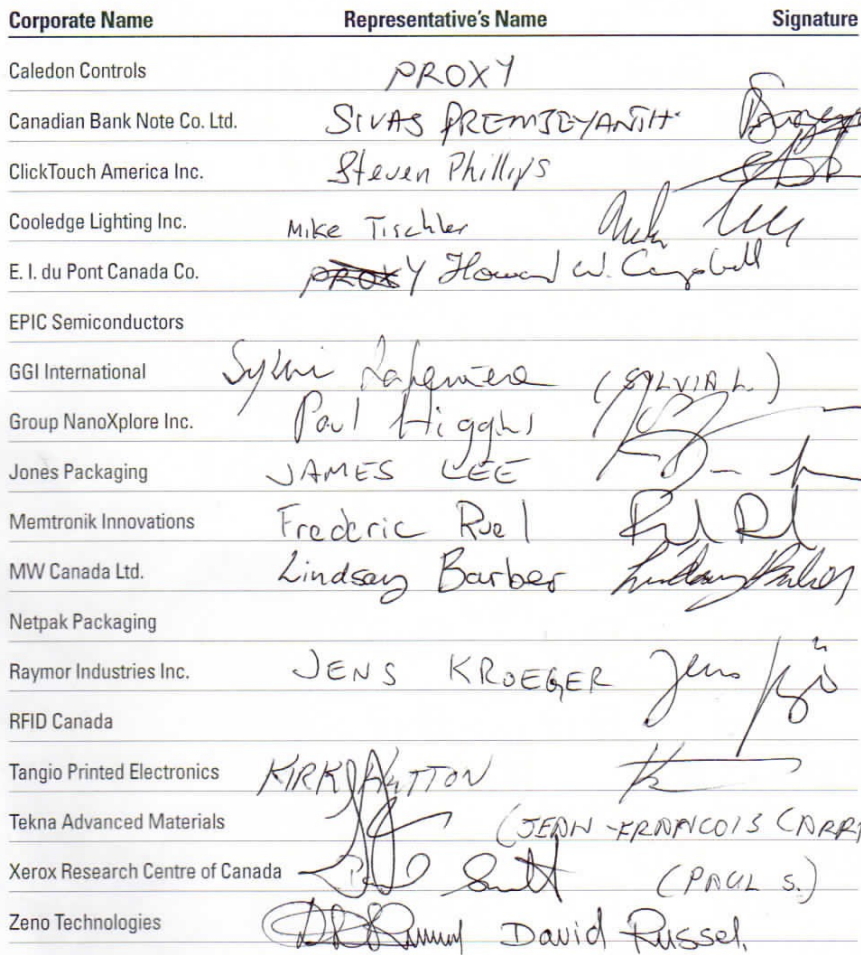 Corporate Name Representative's Name Signature
Caledon Controls PROXY
Canadian Bank Note Co. Ltd. SIVAS PREMJEYANTH
ClickTouch America Inc. Steven Phillips
Cooledge Lighting Inc. Mike Tischler
E. I. du Pont Canada Co. PROXY Howard W. Campbell
EPIC Semiconductors
GGI International Sylvie Laferriere (SYLVIA L.)
Group NanoXplore Inc. Paul Higgins
Jones Packaging JAMES LEE
Memtronik Innovations Frederic Ruel
MW Canada Ltd. Lindsay Barber Lindsay Barber
Netpak Packaging
Raymor Industries Inc. JENS KROEGER Jens
RFID Canada
Tangio Printed Electronics KIRK HUTTON
Tekna Advanced Materials (JEAN-FRANCOIS CARRI
Xerox Research Centre of Canada Smith (PAUL S.)
Zeno Technologies David Russel.